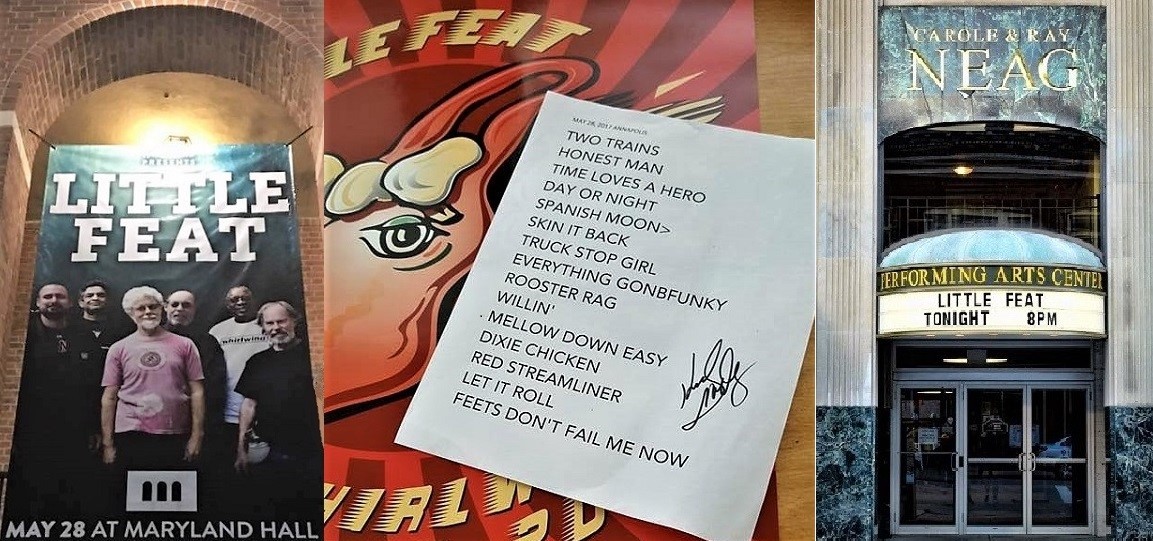 PRESENTS
LITTLE
FEAT
whirlwind
MAY 28 AT MARYLAND HALL
LE FEAT
MAY 28, 2017 ANNAPOLIS
TWO TRAINS
HONEST MAN
TIME LOVES A HERO
DAY OR NIGHT
SPANISH MOON>
SKIN IT BACK
TRUCK STOP GIRL
EVERYTHING GONBFUNKY
ROOSTER RAG
WILLIN'
. MELLOW DOWN EASY
DIXIE CHICKEN
RED STREAMLINER
LET IT ROLL
FEETS DON'T FAIL ME NOW
HIRLW
CAROLE & RAY
NEAG
PERFORMING ARTS CENTER
LITTLE FEAT
TONIGHT 8PM